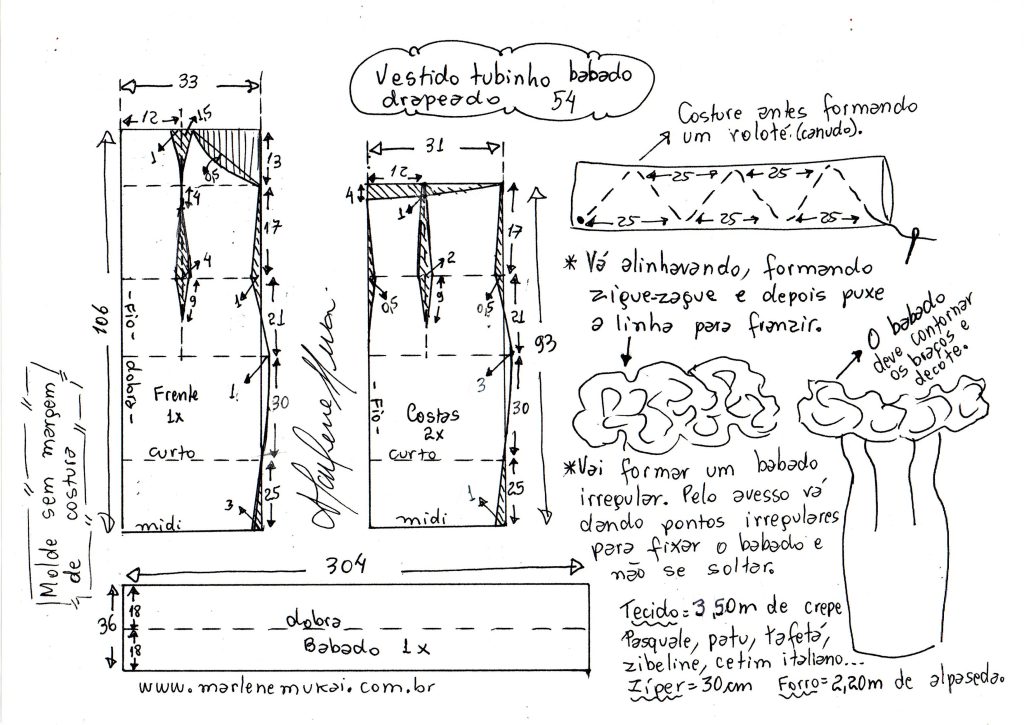 Vestido tubinho babado
drapeado 54
33
12
15
1
0,5
13
4
17
4
9
1
21
106
-Fio-
dobra-
Frente
1x
1
30
curto
25
3
midi
Molde sem margem
de costura
Marlene Mukai
31
12
4
1
17
2
9
0,5
0,5
21
93
3
-Fio-
Costas
2x
30
curto
1
25
midi
304
36
18
18
dobra
Babado 1x
www.marlenemukai.com.br
Costure antes formando
um roloté.(canudo).
25
25
25
25
25
* Vá alinhavando, formando
zigue-zague e depois puxe
a linha para franzir.
O babado
deve contornar
os braços e
decote.
*Vai formar um babado
irregular. Pelo avesso vá
dando pontos irregulares
para fixar o babado e
não se soltar.
Tecido=3,50m de crepe
Pasquale, patu, tafetá,
zibeline, cetim italiano...
Zíper=30cm Forro=2,20m de alpaseda.